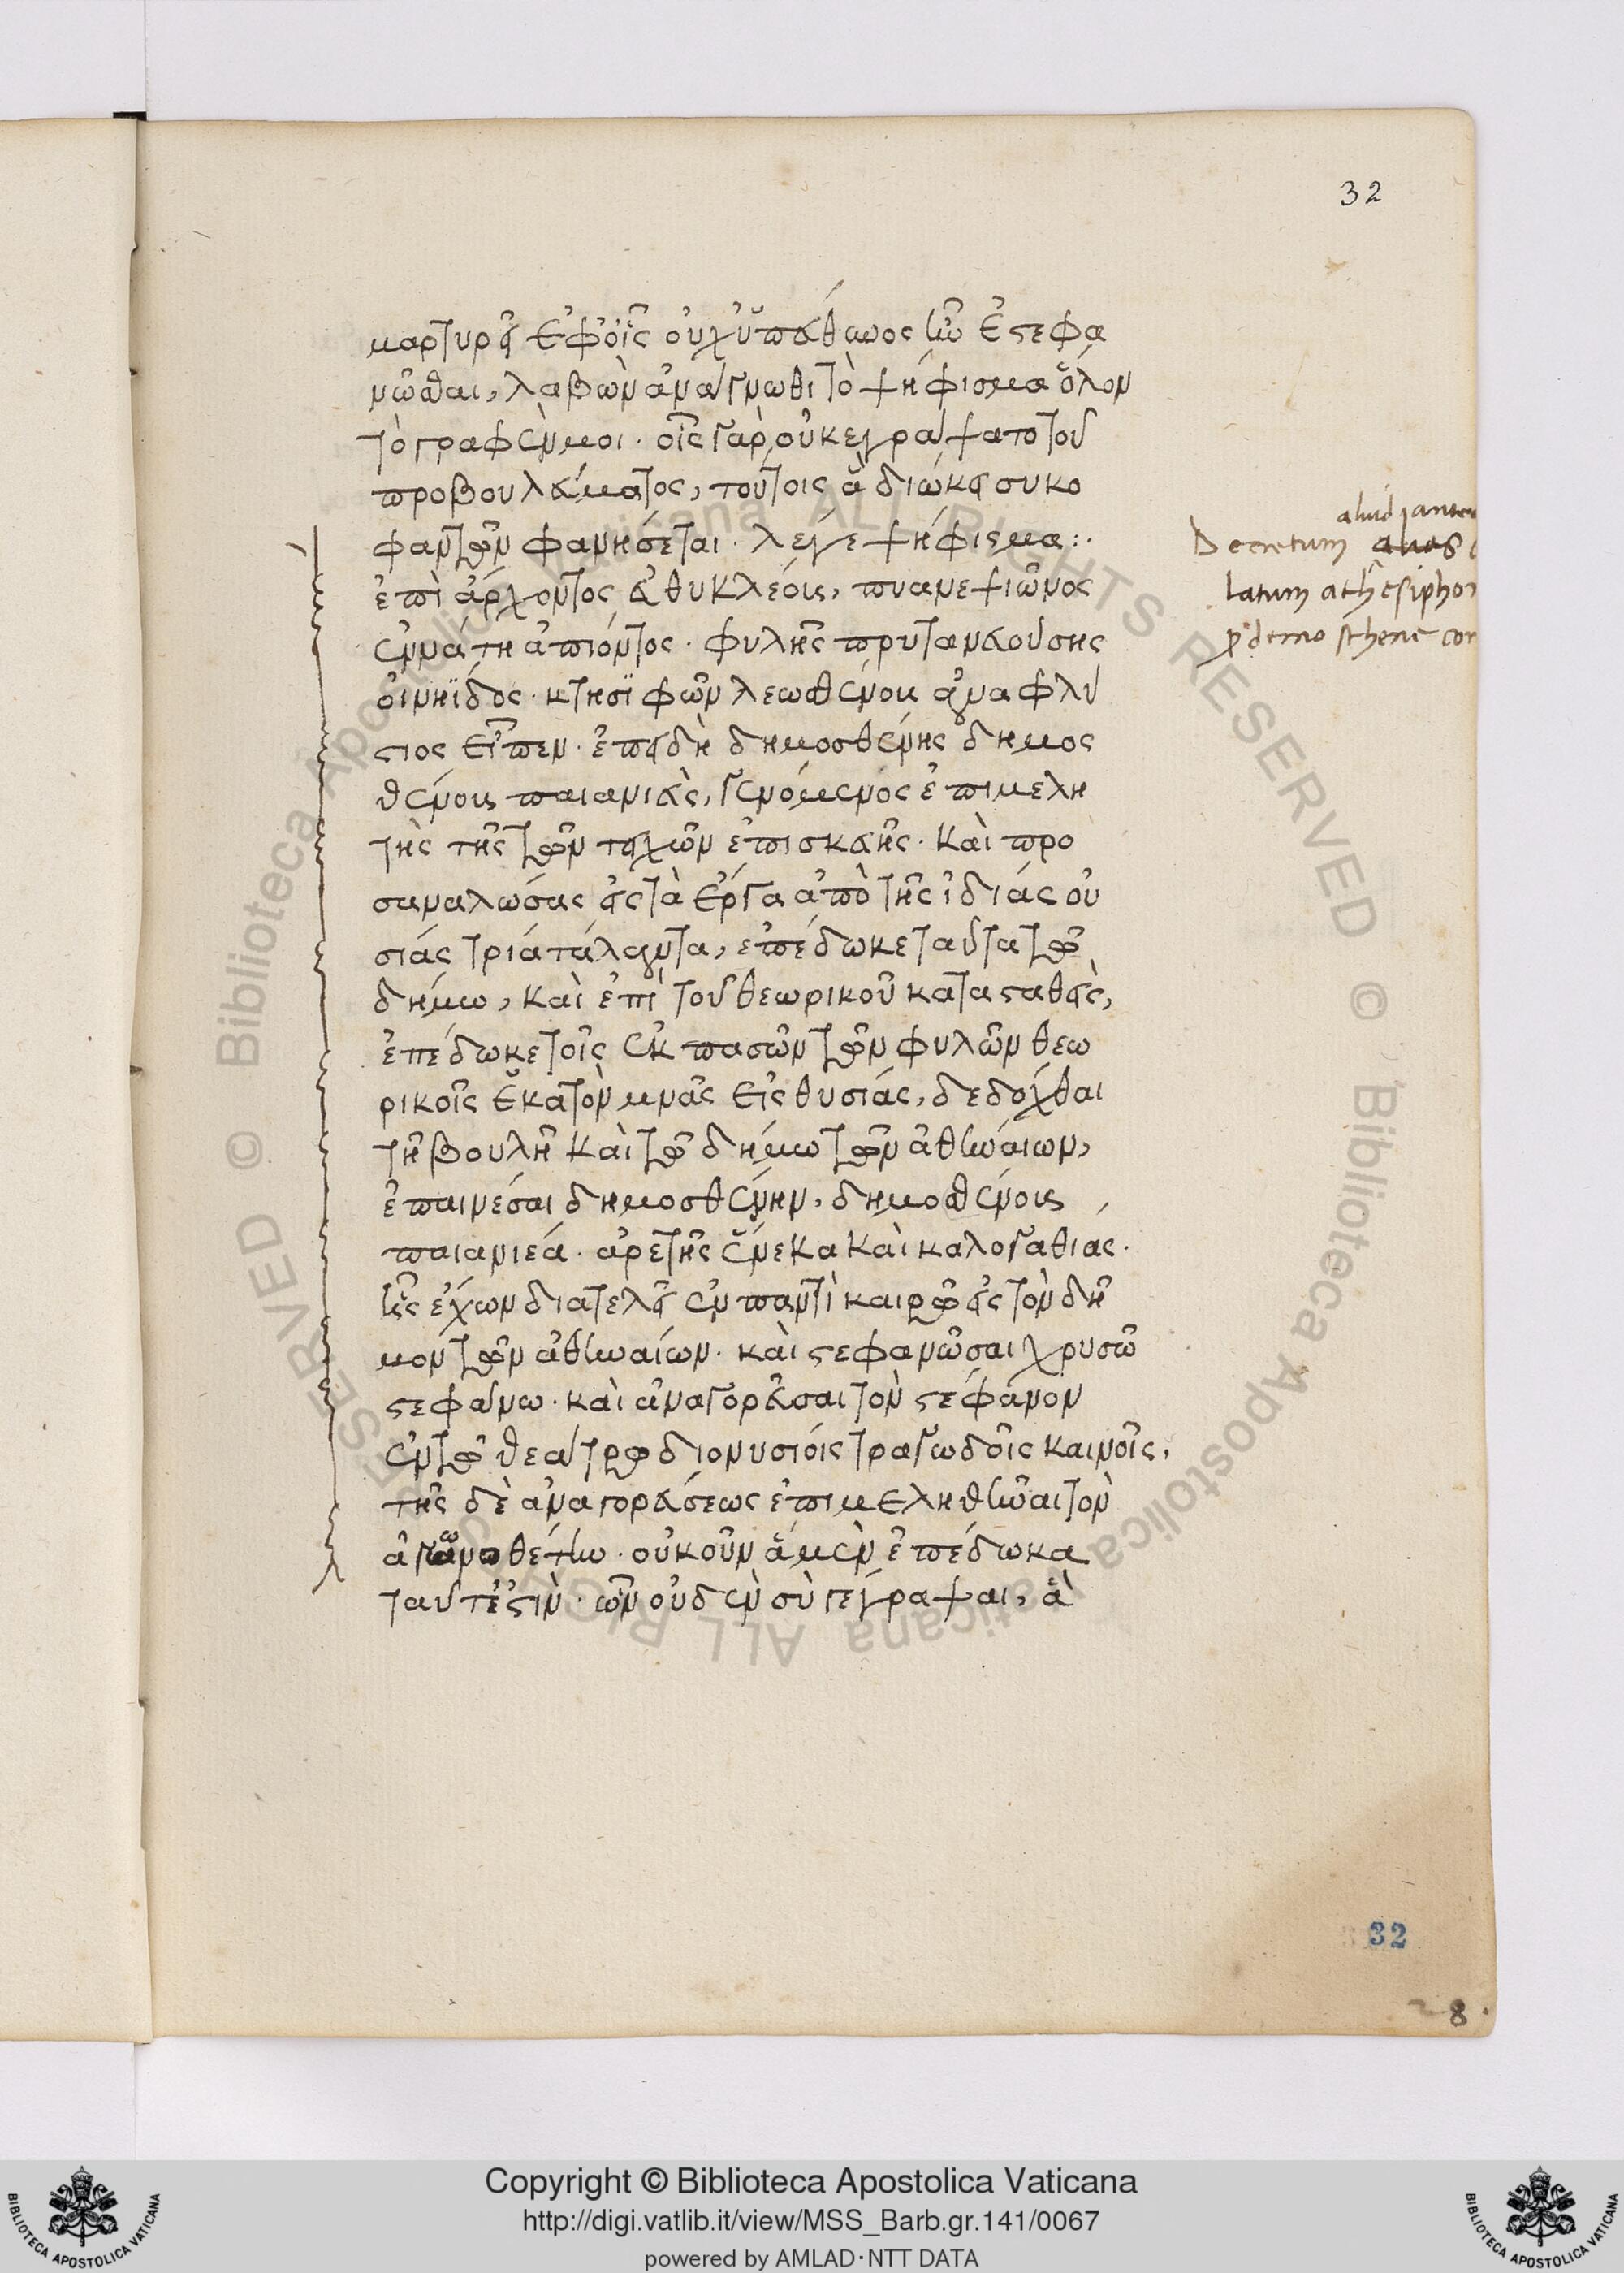 32
μαρτυρεῖ ἐφ' οἷς οὐχ ὑπεύθυνος ἦν ἐστεφα
νῶσθαι, λαβὼν ἀνάγνωθι τὸ ψήφισμα ὅλον
τὸ γραφέν μοι· οἷς γὰρ οὐκ ἐγράψατο τοῦ
προβουλεύματος, τούτοις ἃ διώκει συκο
φαντῶν φανήσεται· λέγε ψήφισμα:·
ἐπὶ ἄρχοντος εὐθυκλέους, πυανεψιῶνος
ἐννάτη ἀπιόντος· φυλῆς πρυτανευούσης
οἰνηΐδος· κτησιφῶν λεωσθένους ἀναφλύ
στιος εἶπεν· ἐπειδὴ δημοσθένης δημοσ
θένους παιανιεὺς, γενόμενος ἐπιμελη
τὴς τῆς τῶν τειχῶν ἐπισκευῆς· καὶ προ
σαναλώσας εἰς τὰ ἔργα ἀπὸ τῆς ἰδίας οὐ
σίας τρία τάλαντα, ἐπέδωκε ταῦτα τῶ
δήμω, καὶ ἐπὶ τοῦ θεωρικοῦ κατασταθεὶς,
ἐπέδωκε τοῖς ἐκ πασῶν τῶν φυλῶν θεω
ρικοῖς ἑκατὸν μνᾶς εἰς θυσίας, δεδόχθαι
τῆ βουλῆ καὶ τῶ δήμω τῶν ἀθηναίων,
ἐπαινέσαι δημοσθένην, δημοσθένους
παιανιέα· ἀρετῆς ἕνεκα καὶ καλογαθίας·
ἧς ἔχων διατελεῖ ἐν παντὶ καιρῶ εἰς τὸν δῆ
μον τῶν ἀθηναίων· καὶ στεφανῶσαι χρυσῶ
στεφάνω· καὶ ἀναγορεῦσαι τὸν στέφανον
ἐν τῶ θεάτρω διονυσίοις τραγωδοῖς καινοῖς,
τῆς δὲ ἀναγορεύσεως ἐπιμεληθῆναι τὸν
ἀγωνοθέτην· οὐκοῦν ἃ μὲν ἐπέδωκα
ταῦτ' ἐστὶν· ὧν οὐδὲν σὺ γέγραψαι, ἃ
Decretum
latum
32
8
Copyright © Biblioteca Apostolica Vaticana
http://digi.vatlib.it/view/MSS_Barb.gr.141/0067
powered by AMLAD·NTT DATA
BIBLIOTECA APOSTOLICA VATICANA
BIBLIOTECA APOSTOLICA VATICANA
© Biblioteca Apostolica Vaticana ALL RIGHTS RESERVED
© Biblioteca Apostolica Vaticana ALL RIGHTS RESERVED